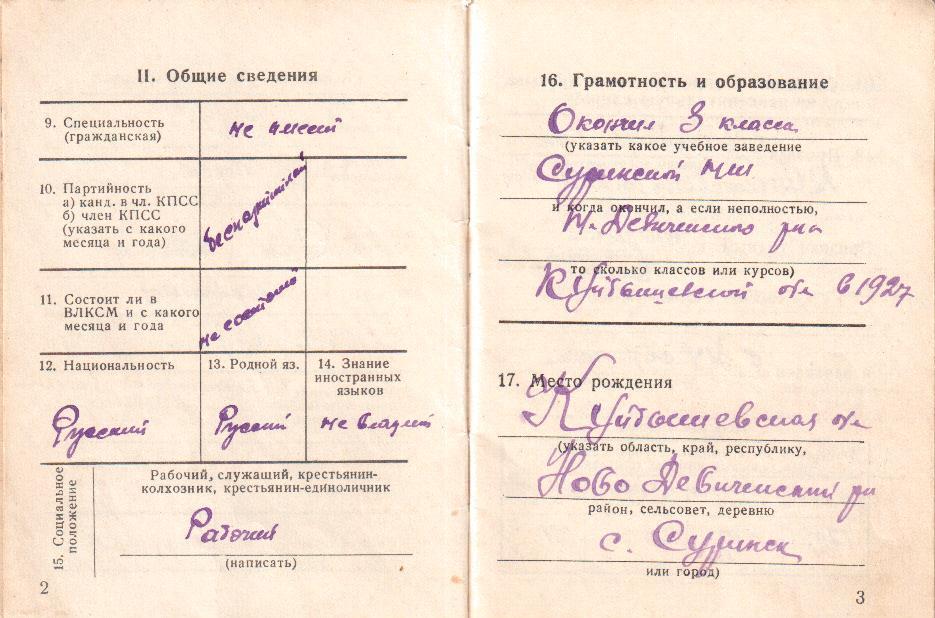 II. Общие сведения
9. Специальность
(гражданская)
не имеет
10. Партийность
а) канд. в чл. КПСС
б) член КПСС
(указать с какого
месяца и года)
беспартийный
11. Состоит ли в
ВЛКСМ и с какого
месяца и года
не состоит
12. Национальность
Русский
13. Родной яз.
Русский
14. Знание
иностранных
языков
не владеет
15. Социальное
положение
Рабочий, служащий, крестьянин-
колхозник, крестьянин-единоличник
Рабочий
(написать)
2
16. Грамотность и образование
Окончил 3 класса
(указать какое учебное заведение
Суринской
и когда окончил, а если неполностью,
Н. Девиченского р-на
то сколько классов или курсов)
Куйбышевской обл в 1927
17. Место рождения
Куйбышевская обл
(указать область, край, республику,
Ново Девиченский р-н
район, сельсовет, деревню
с. Суринск
или город)
3